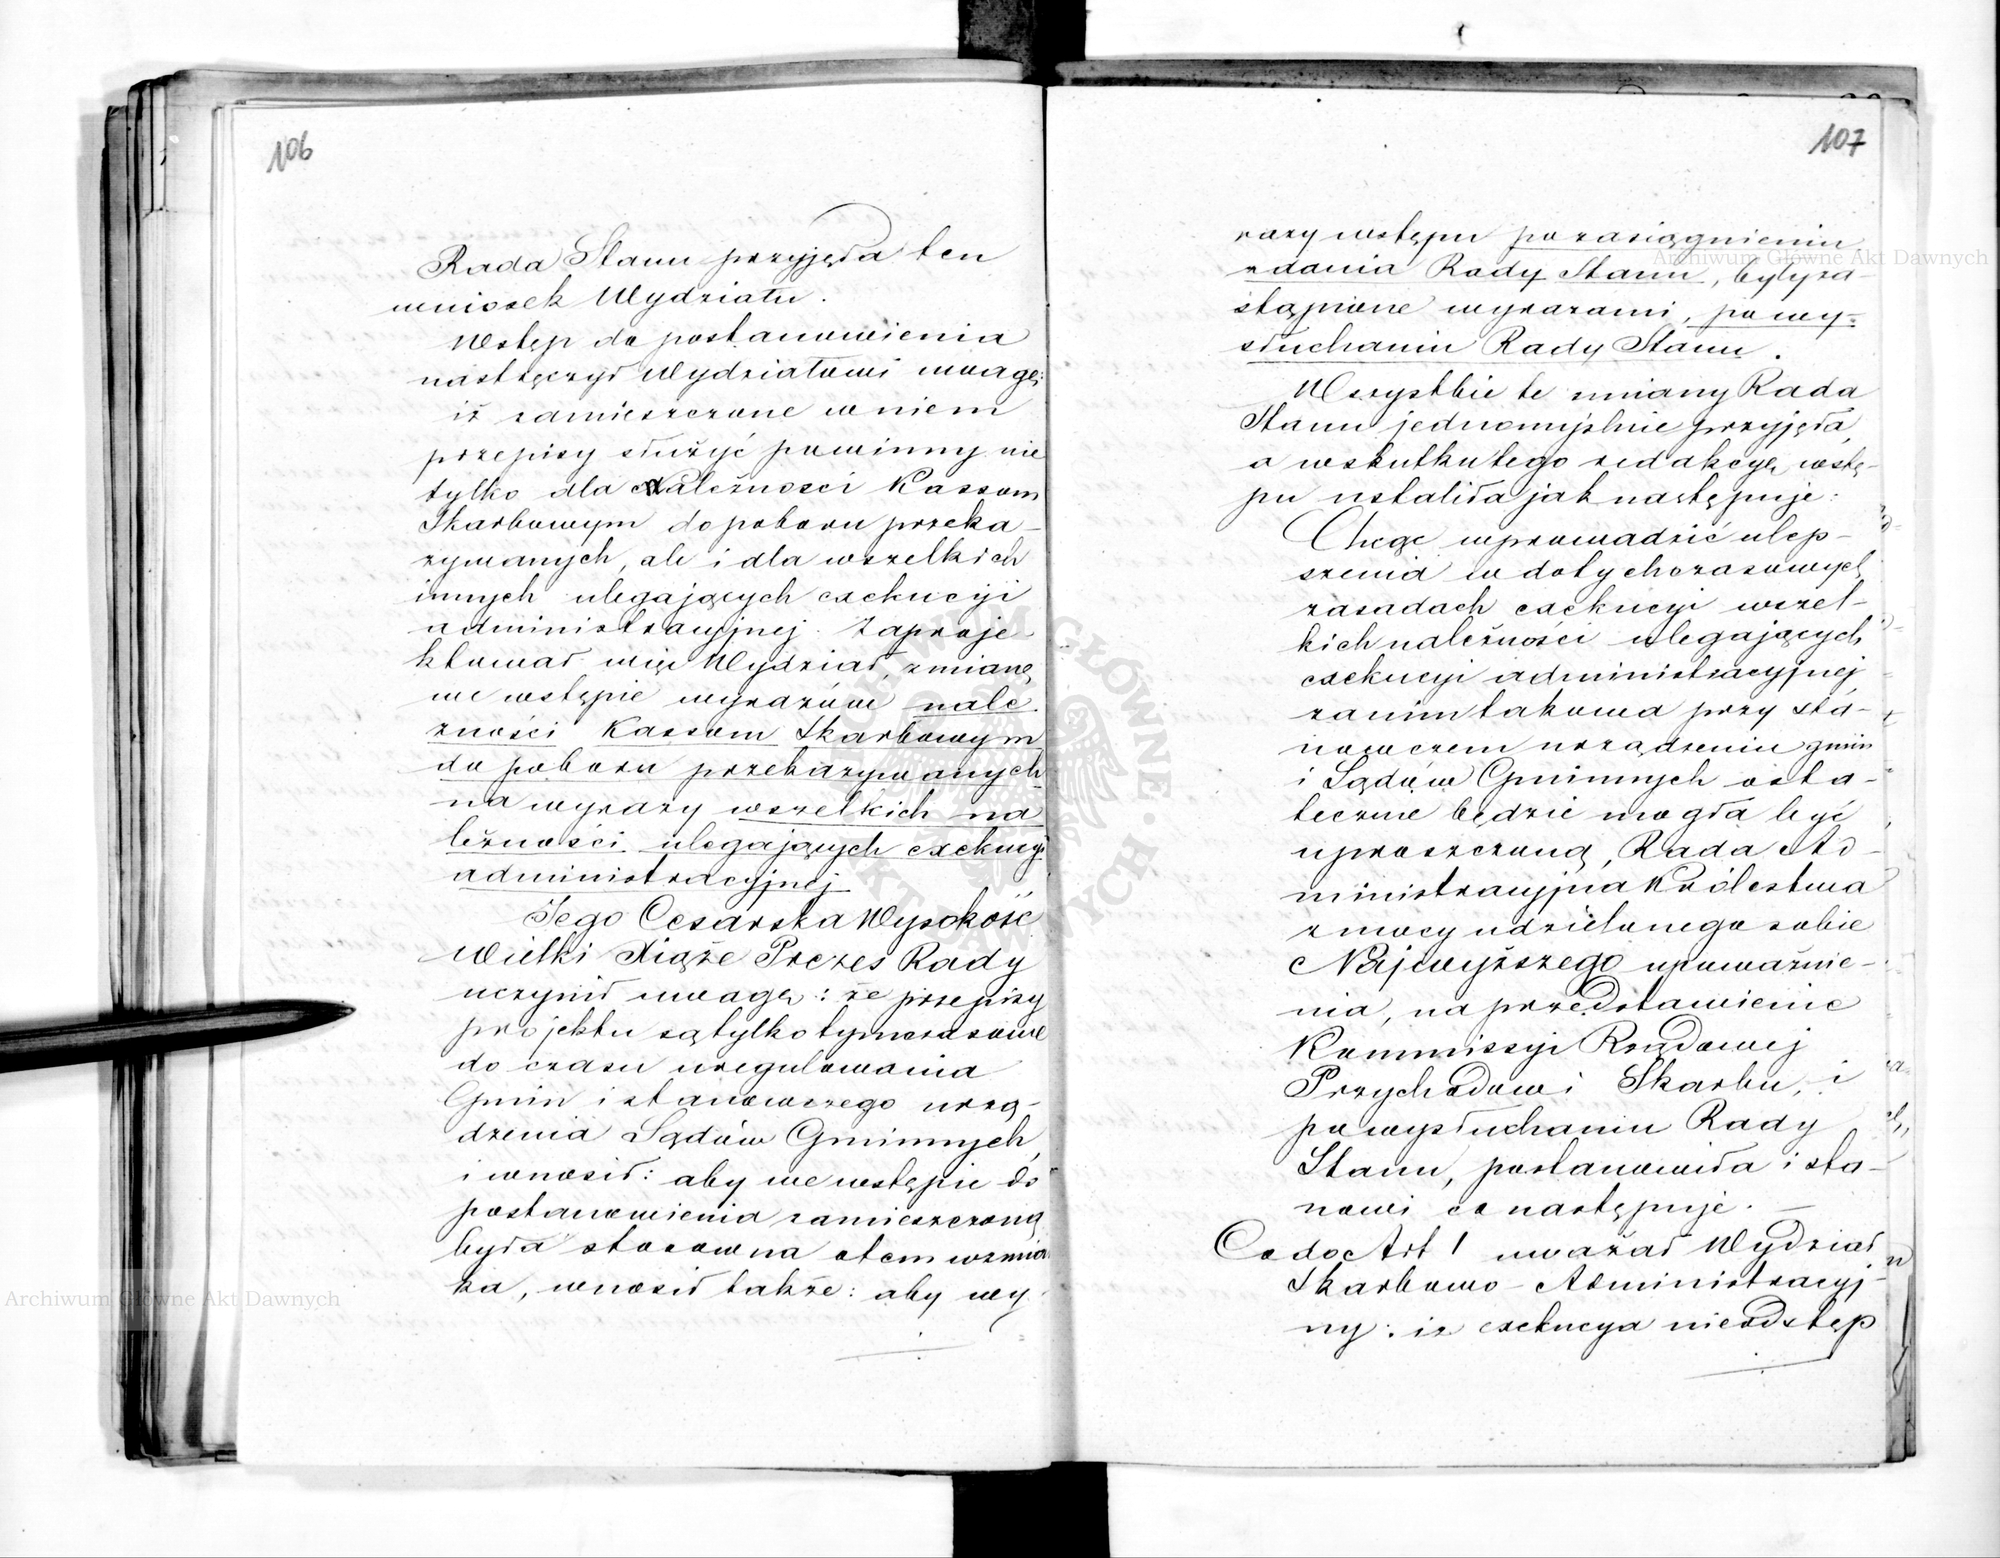 106
Rada Stanu przyjęła ten
wniosek Wydziału.
Wstęp do postanowienia
nastręczył Wydziałowi uwagę:
iż zamieszczone w niem
przepisy służyć powinny nie
tylko dla Należności Kassom
Skarbowym do poboru przeka-
zywanych, ale i dla wszelkich
innych ulegających exekucyi
administracyjnej. Zaproje-
ktował więc Wydział, zmianę
we wstępie wyrazów nale-
żności Kassom Skarbowym
do poboru przekazywanych
na wyrazy wszelkich na
leżności ulegających exekucyi
administracyjnej
Jego Cesarska Wysokość
Wielki Xiąże Prezes Rady
uczynił uwagę: że przepisy
projektu są tylko tymczasowe
do czasu uregulowania
Gmin i stanowczego urzą-
dzenia Sądów Gminnych,
i wnosił: aby we wstępie do
postanowienia zamieszczoną
była stosowna o tem wzmian
ka, wnosił także: aby wy
107
razy wstępu po zasiągnieniu
zdania Rady Stanu, były za-
stąpione wyrazami, po wy-
słuchaniu Rady Stanu.
Wszystkie te zmiany Rada
Stanu jednomyślnie przyjęła,
a wskutku tego redakcyę wstę-
pu ustaliła jak następuje:
Chcąc wprowadzić ulep-
szenia w dotychczasowych
zasadach exekucyi wszel-
kich należności ulegających
exekucyi administracyjnej
zanim takowa przy sta-
nowczem urządzeniu gmin
i Sądów Gminnych osta-
tecznie będzie mogła być
uproszczoną, Rada Ad-
ministracyjna Królestwa
z mocy udzielonego sobie
Najwyższego upoważnie-
nia, na przedstawienie
Kommissyi Rządowej
Przychodów i Skarbu, i
po wysłuchaniu Rady
Stanu, postanowiła i sta-
nowi co następuje. —
Co do Art 1 uważał Wydział
Skarbowo-Administracyj-
ny: iż exekucya nieodstęp
Archiwum Główne Akt Dawnych
Archiwum Główne Akt Dawnych
ARCHIWUM GŁÓWNE AKT DAWNYCH